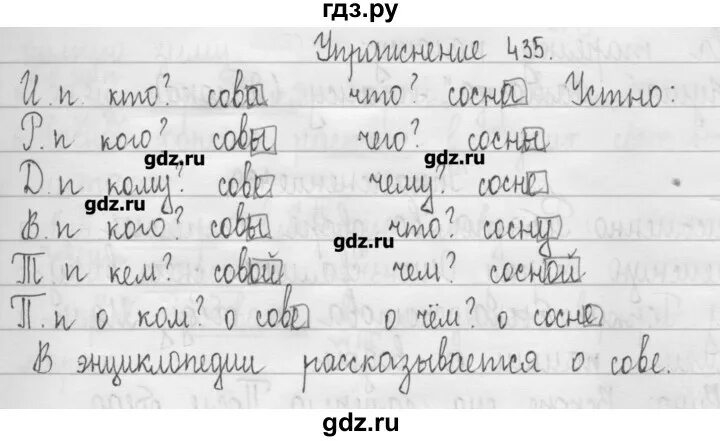 гдз.ру
Упражнение 435.
И. п кто? сова что? сосна Устно:
Р. п кого? совы чего? сосны
gdz.ru gdz.ru
Д. п кому? сове чему? сосне
gdz.ru
В. п кого? совы что? сосну
gdz.ru
Т п кем? совой чем? сосной
П. п о ком? о сове о чём? о сосне
В энциклопедии рассказывается о сове.
gdz.ru